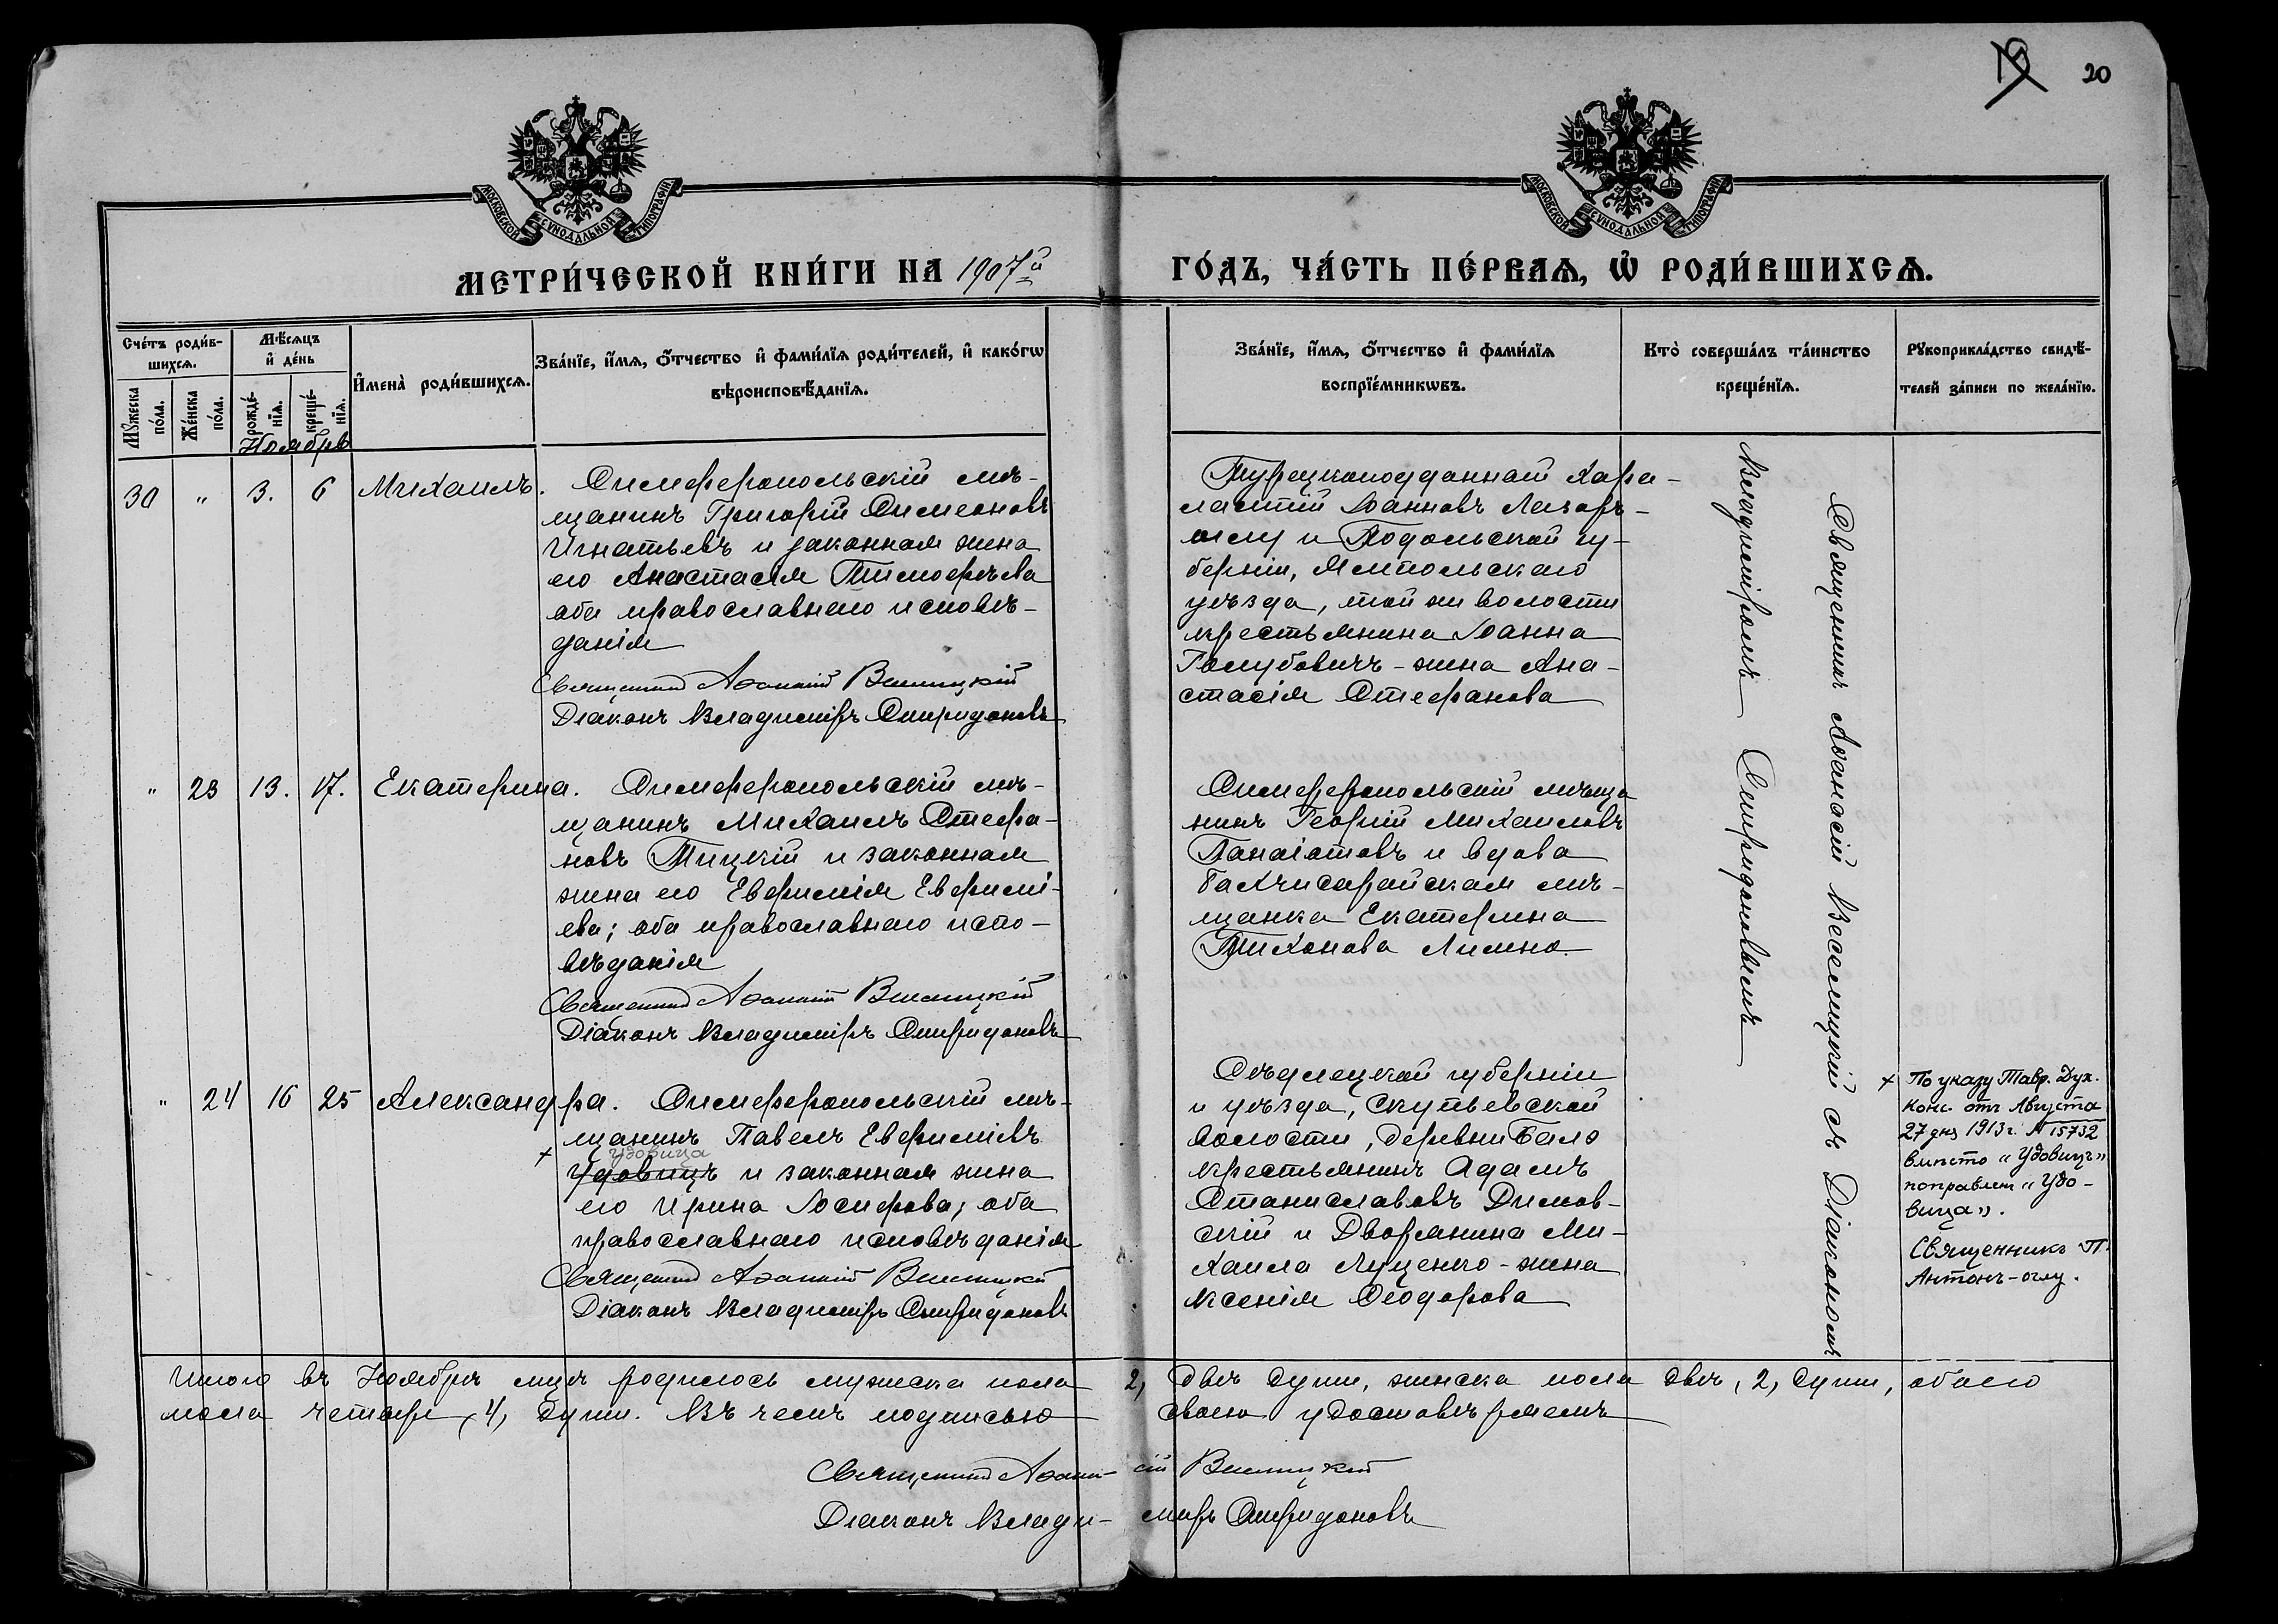 19 20
МОСКОВСКОЙ СѴНОДАЛЬНОЙ ТИПОГРАФІИ
МОСКОВСКОЙ СѴНОДАЛЬНОЙ ТИПОГРАФІИ
МЕТРИ́ЧЕСКОЙ КНИ́ГИ НА 1907й
ГО́ДЪ, ЧА́СТЬ ПЕ́РВАѦ, Ѡ҆ РОДИ́ВШИХСѦ.
Сче́тъ роди́в-
шихсѧ.
Мꙋ́жеска
по́ла.
Же́нска
по́ла.
Мѣ́сѧцъ
и҆ де́нь
рожде́-
нїѧ.
креще́-
нїѧ.
И҆мена̀ роди́вшихсѧ.
Зва́нїе, и҆́мѧ, ѻ҆́тчество и҆ фами́лїѧ роди́телей, и҆ како́гѡ
вѣроисповѣ́данїѧ.
Зва́нїе, и҆́мѧ, ѻ҆́тчество и҆ фами́лїѧ
воспрїе́мникѡвъ.
Кто̀ соверша́лъ та́инство
креще́нїѧ.
Рꙋкоприкла́дство свидѣ́-
телей за́писи по жела́нїю.
Ноябрь
30 " 3. 6 Михаилъ.
Симферопольскій мѣ-
щанинъ Григорій Симеоновъ
Игнатьевъ и законная жена
его Анастасія Тимофѣева
оба православнаго исповѣ-
данія
Священникъ Аѳанасій Веселицкій
Діаконъ Владиміръ Спиридоновъ
Турецкоподданный Хара-
лампій Іоанновъ Лазарь-
оглу и Подольской гу-
берніи, Ямпольскаго
уѣзда, той же волости
крестьянина Іоанна
Голубовичъ - жена Ана-
стасія Стефанова
" 23 13. 17. Екатерина.
Симферопольскій мѣ-
щанинъ Михаилъ Стефа-
новъ Тицкій и законная
жена его Евфимія Евфимі-
ева; оба православнаго испо-
вѣданія
Священникъ Аѳанасій Веселицкій
Діаконъ Владиміръ Спиридоновъ
Симферопольскій мѣща
нинъ Георгій Михаиловъ
Панаіотовъ и вдова
Бахчисарайская мѣ-
щанка Екатерина
Тихонова
" 24 16 25 Александра.
Симферопольскій мѣ-
щанинъ Павелъ Евфиміевъ
удовица
+ Удовицъ и законная жена
его Ирина Іосифова; оба
православнаго исповѣданія
Священникъ Аѳанасій Веселицкій
Діаконъ Владиміръ Спиридоновъ
Сѣдлецкой губерніи
и уѣзда, Скупьевской
волости, деревни
крестьянинъ Адамъ
Станиславовъ Димов-
скій и Дворянина Ми-
хаила Луценко - жена
Ксенія Ѳеодорова
Священникъ Аѳанасій Веселицкій съ Діакономъ
Владиміромъ Спиридоновымъ
+ По указу Тавр. Дух.
Конс. отъ Августа
27 дня 1913 г. № 15732
вмѣсто "Удовицъ"
поправлен "Удо-
вица".
Священникъ П.
Антонъ-оглу.
Итого въ Ноябрѣ мцѣ родилось мужеска пола 2, двѣ души, женска пола двѣ, 2, души, обоего
пола четыре, 4, души. Въ чемъ подписью своею удостовѣряемъ
Священникъ Аѳана- сій Веселицкій
Діаконъ Влади- миръ Спиридоновъ